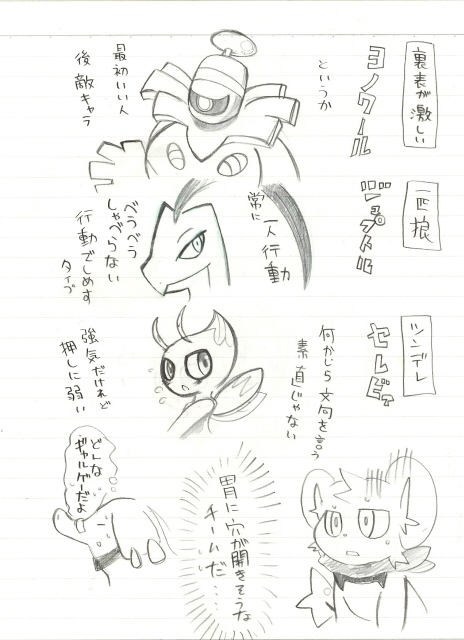 裏表が激しい
ヨノワール
というか
最初いい人
後敵キャラ
一匹狼
ジュプトル
常に
一人行動
べらべら
しゃべらない
行動でしめす
タイプ
ツンデレ
セレビィ
何かしら文句を言う
素直じゃない
強気だけれど
押しに弱い
胃に穴が開きそうな
チームだ・・・・
どんな
ギャルゲーだよ